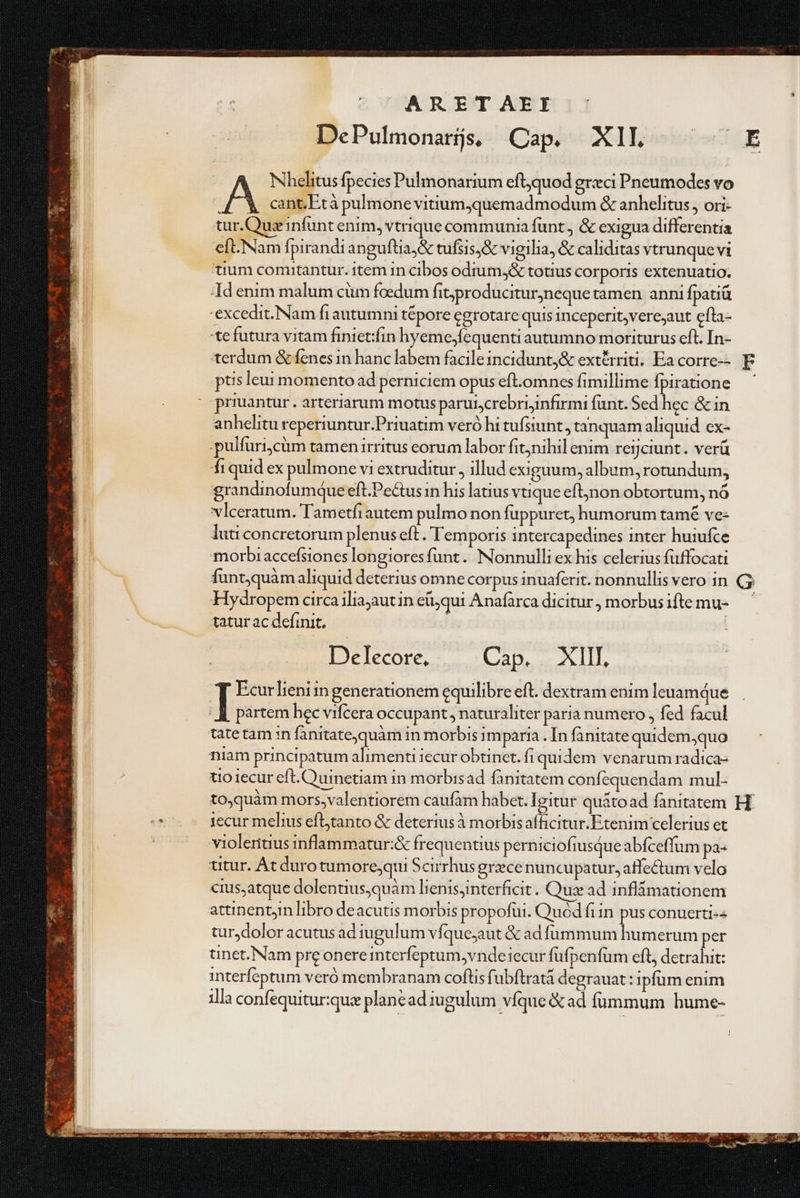 ARETAEI
DePulmonarijs, Cap. XII. E
ANhelitus ſpecies Pulmonarium eſt,quod græci Pneumodes vo
cant.Et à pulmone vitium,quemadmodum & anhelitus, ori-
tur.Quæ infunt enim, vtrique communia ſunt, & exigua differentia
eſt.Nam ſpirandi anguſtia,& tuſsis,& vigilia, & caliditas vtrunque vi
tium comitantur. item in cibos odium,& totius corporis extenuatio.
Id enim malum cùm fœdum fit,producitur,neque tamen anni ſpatiũ
excedit.Nam ſi autumni tẽpore ęgrotare quis inceperit,vere,aut ęſta-
te futura vitam finiet:ſin hyeme,ſequenti autumno moriturus eſt. In-
terdum & ſenes in hanc labem facile incidunt,& extẽrriti. Ea corre-- F
ptis leui momento ad perniciem opus eſt.omnes ſimillime ſpiratione
priuantur. arteriarum motus parui,crebri,infirmi ſunt. Sed hęc & in
anhelitu reperiuntur.Priuatim verò hi tuſsiunt, tanquam aliquid ex-
pulſuri,cùm tamen irritus eorum labor fit,nihil enim reijciunt. verũ
ſi quid ex pulmone vi extruditur, illud exiguum, album, rotundum,
grandinoſumq́ue eſt.Pectus in his latius vtique eſt,non obtortum, nõ
vlceratum. Tametſi autem pulmo non ſuppuret, humorum tamẽ ve-
luti concretorum plenus eſt. Temporis intercapedines inter huiuſce
morbi acceſsiones longiores ſunt. Nonnulli ex his celerius ſuffocati
ſunt,quàm aliquid deterius omne corpus inuaſerit. nonnullis vero in G
Hydropem circa ilia,aut in eũ,qui Anaſarca dicitur, morbus iſte mu-
tatur ac definit.
DeIecore, Cap. XIII,
IEcur lieni in generationem ęquilibre eſt. dextram enim leuamq́ue
partem hęc viſcera occupant, naturaliter paria numero, ſed facul
tate tam in ſanitate,quàm in morbis imparia. In ſanitate quidem,quo
niam principatum alimenti iecur obtinet. ſi quidem venarum radica-
tio iecur eſt.Quinetiam in morbis ad ſanitatem conſequendam mul-
to,quàm mors,valentiorem cauſam habet. Igitur quãto ad ſanitatem H
iecur melius eſt,tanto & deterius à morbis afficitur.Etenim celerius et
violentius inflammatur:& frequentius pernicioſiusq́ue abſceſſum pa-
titur. At duro tumore,qui Scirrhus græce nuncupatur, affectum velo
cius,atque dolentius,quàm lienis,interficit. Quæ ad inflãmationem
attinent,in libro de acutis morbis propoſui. Quòd ſi in pus conuerti--
tur,dolor acutus ad iugulum vſque,aut & ad ſummum humerum per
tinet.Nam prę onere interſeptum,vnde iecur ſuſpenſum eſt, detrahit:
interſeptum verò membranam coſtis ſubſtratã degrauat: ipſum enim
illa conſequitur:quæ planè ad iugulum vſque & ad ſummum hume-